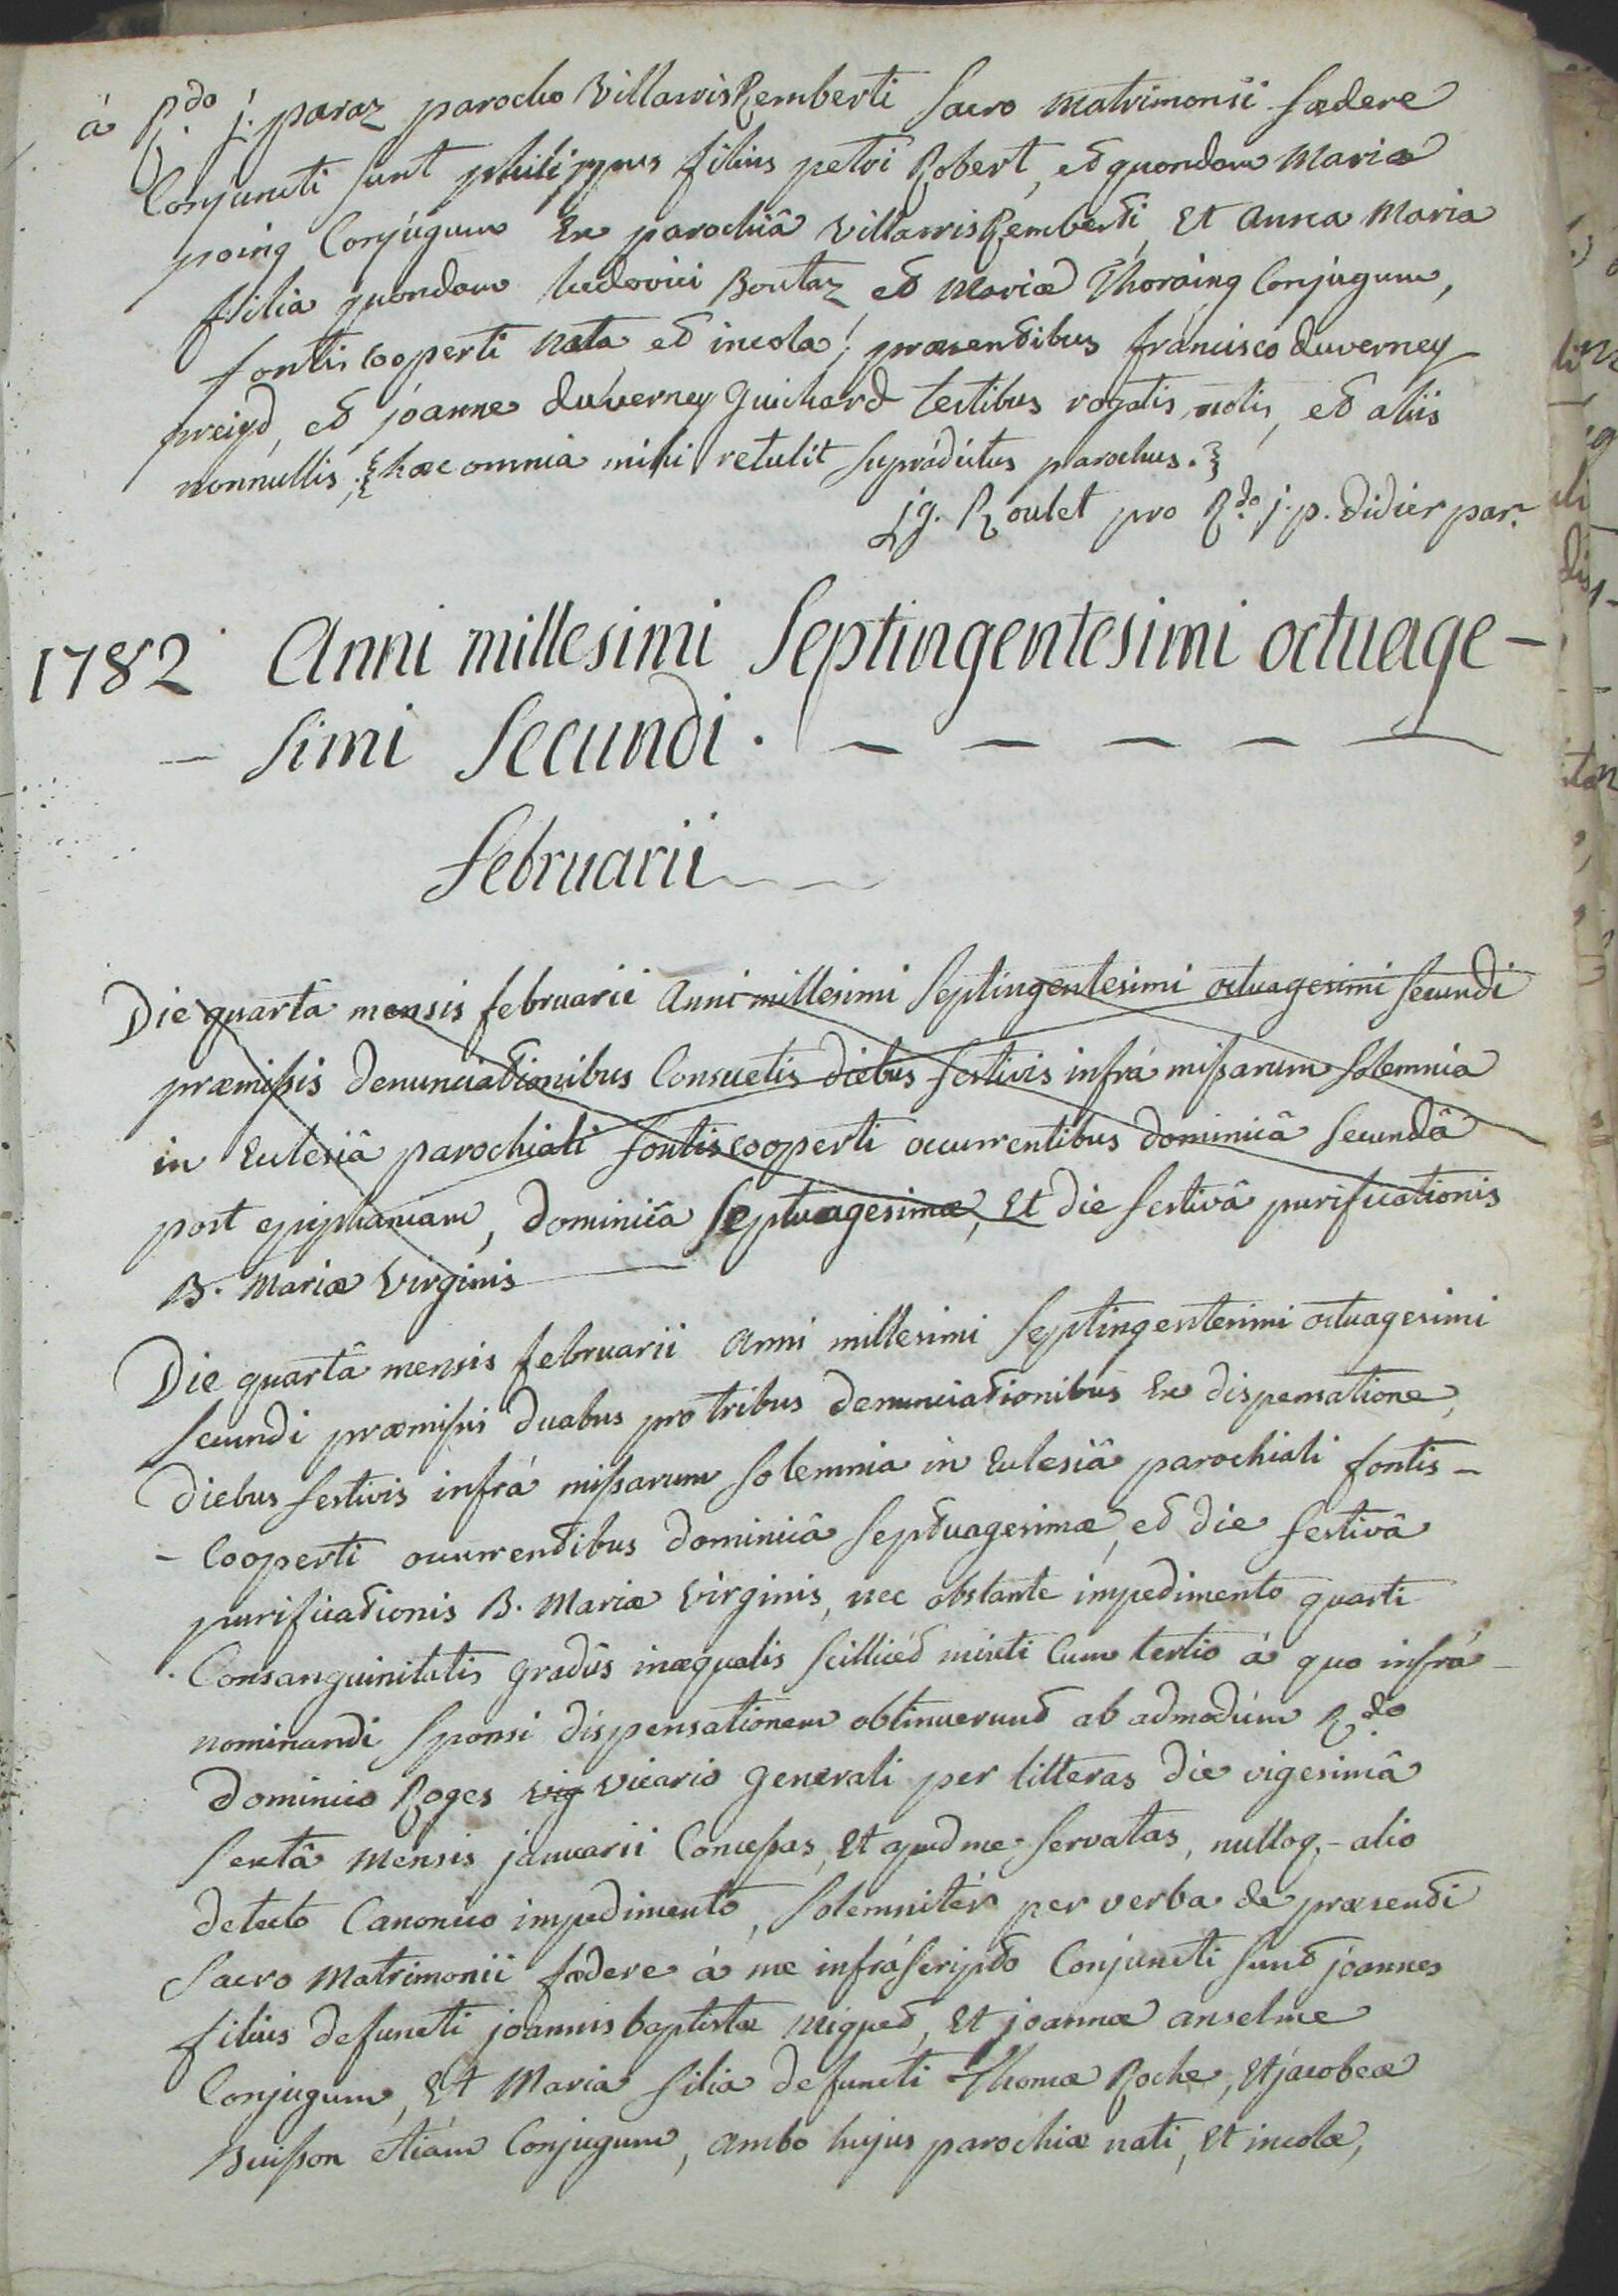 à R.do j. paraz parocho VillarisRemberti Sacro matrimonii fœdere
Conjuncti sunt philippus filius petri Robert, et quondam Mariæ
poing Conjugum Ex parochiâ VillarisRemberti, Et Anna Maria
filia quondam ludovici Boutaz et Mariæ Thoraing Conjugum,
fontiscooperti Nata et incola; præsentibus francisco duverney
preigd, et joanne duverney Guichard testibus rogatis notis, et aliis
nonnullis. hæc omnia mihi retulit supradictus parochus.
jg. Roulet pro R.do j. p. didier par.
1782 Anni millesimi Septingentesimi octuage-
- simi Secundi.
februarii
Die quartâ mensis februarii Anni millesimi Septingentesimi octuagesimi secundi
præmissis denunciationibus Consuetis diebus festivis infrà missarum solemnia
in Ecclesiâ parochiali fontiscooperti occurrentibus dominicâ secundâ
post epiphaniam, dominicâ Septuagesimæ, Et die festivâ purificationis
B. Mariæ Virginis
Die quartâ mensis februarii Anni millesimi Septingentesimi octuagesimi
secundi præmissis duabus pro tribus denunciationibus Ex dispensatione,
diebus festivis infrà missarum solemnia in Ecclesiâ parochiali fontis-
- Cooperti occurrentibus dominicâ Septuagesimæ, et die festivâ
purificationis B. Mariæ Virginis, nec obstante impedimento quarti
Consanguinitatis gradûs inæqualis scillicet mixti Cum tertio à quo infrà-
nominandi sponsi dispensationem obtinuerunt ab admodùm R.do
Dominico Roges vig vicario generali per litteras die vigesimâ
sextâ Mensis januarii Concessas, Et apud me servatas, nulloq;- alio
detecto Canonico impedimento, solemnitèr per verba de præsenti
Sacro Matrimonii fœdere à me infràscripto Conjuncti sunt joannes
filius defuncti joannis baptistæ Miqued, Et joannæ anselme
Conjugum, Et Maria filia defuncti Thomæ Roche, Et jacobeæ
Buisson etiam Conjugum, ambo hujus parochiæ nati, Et incolæ,